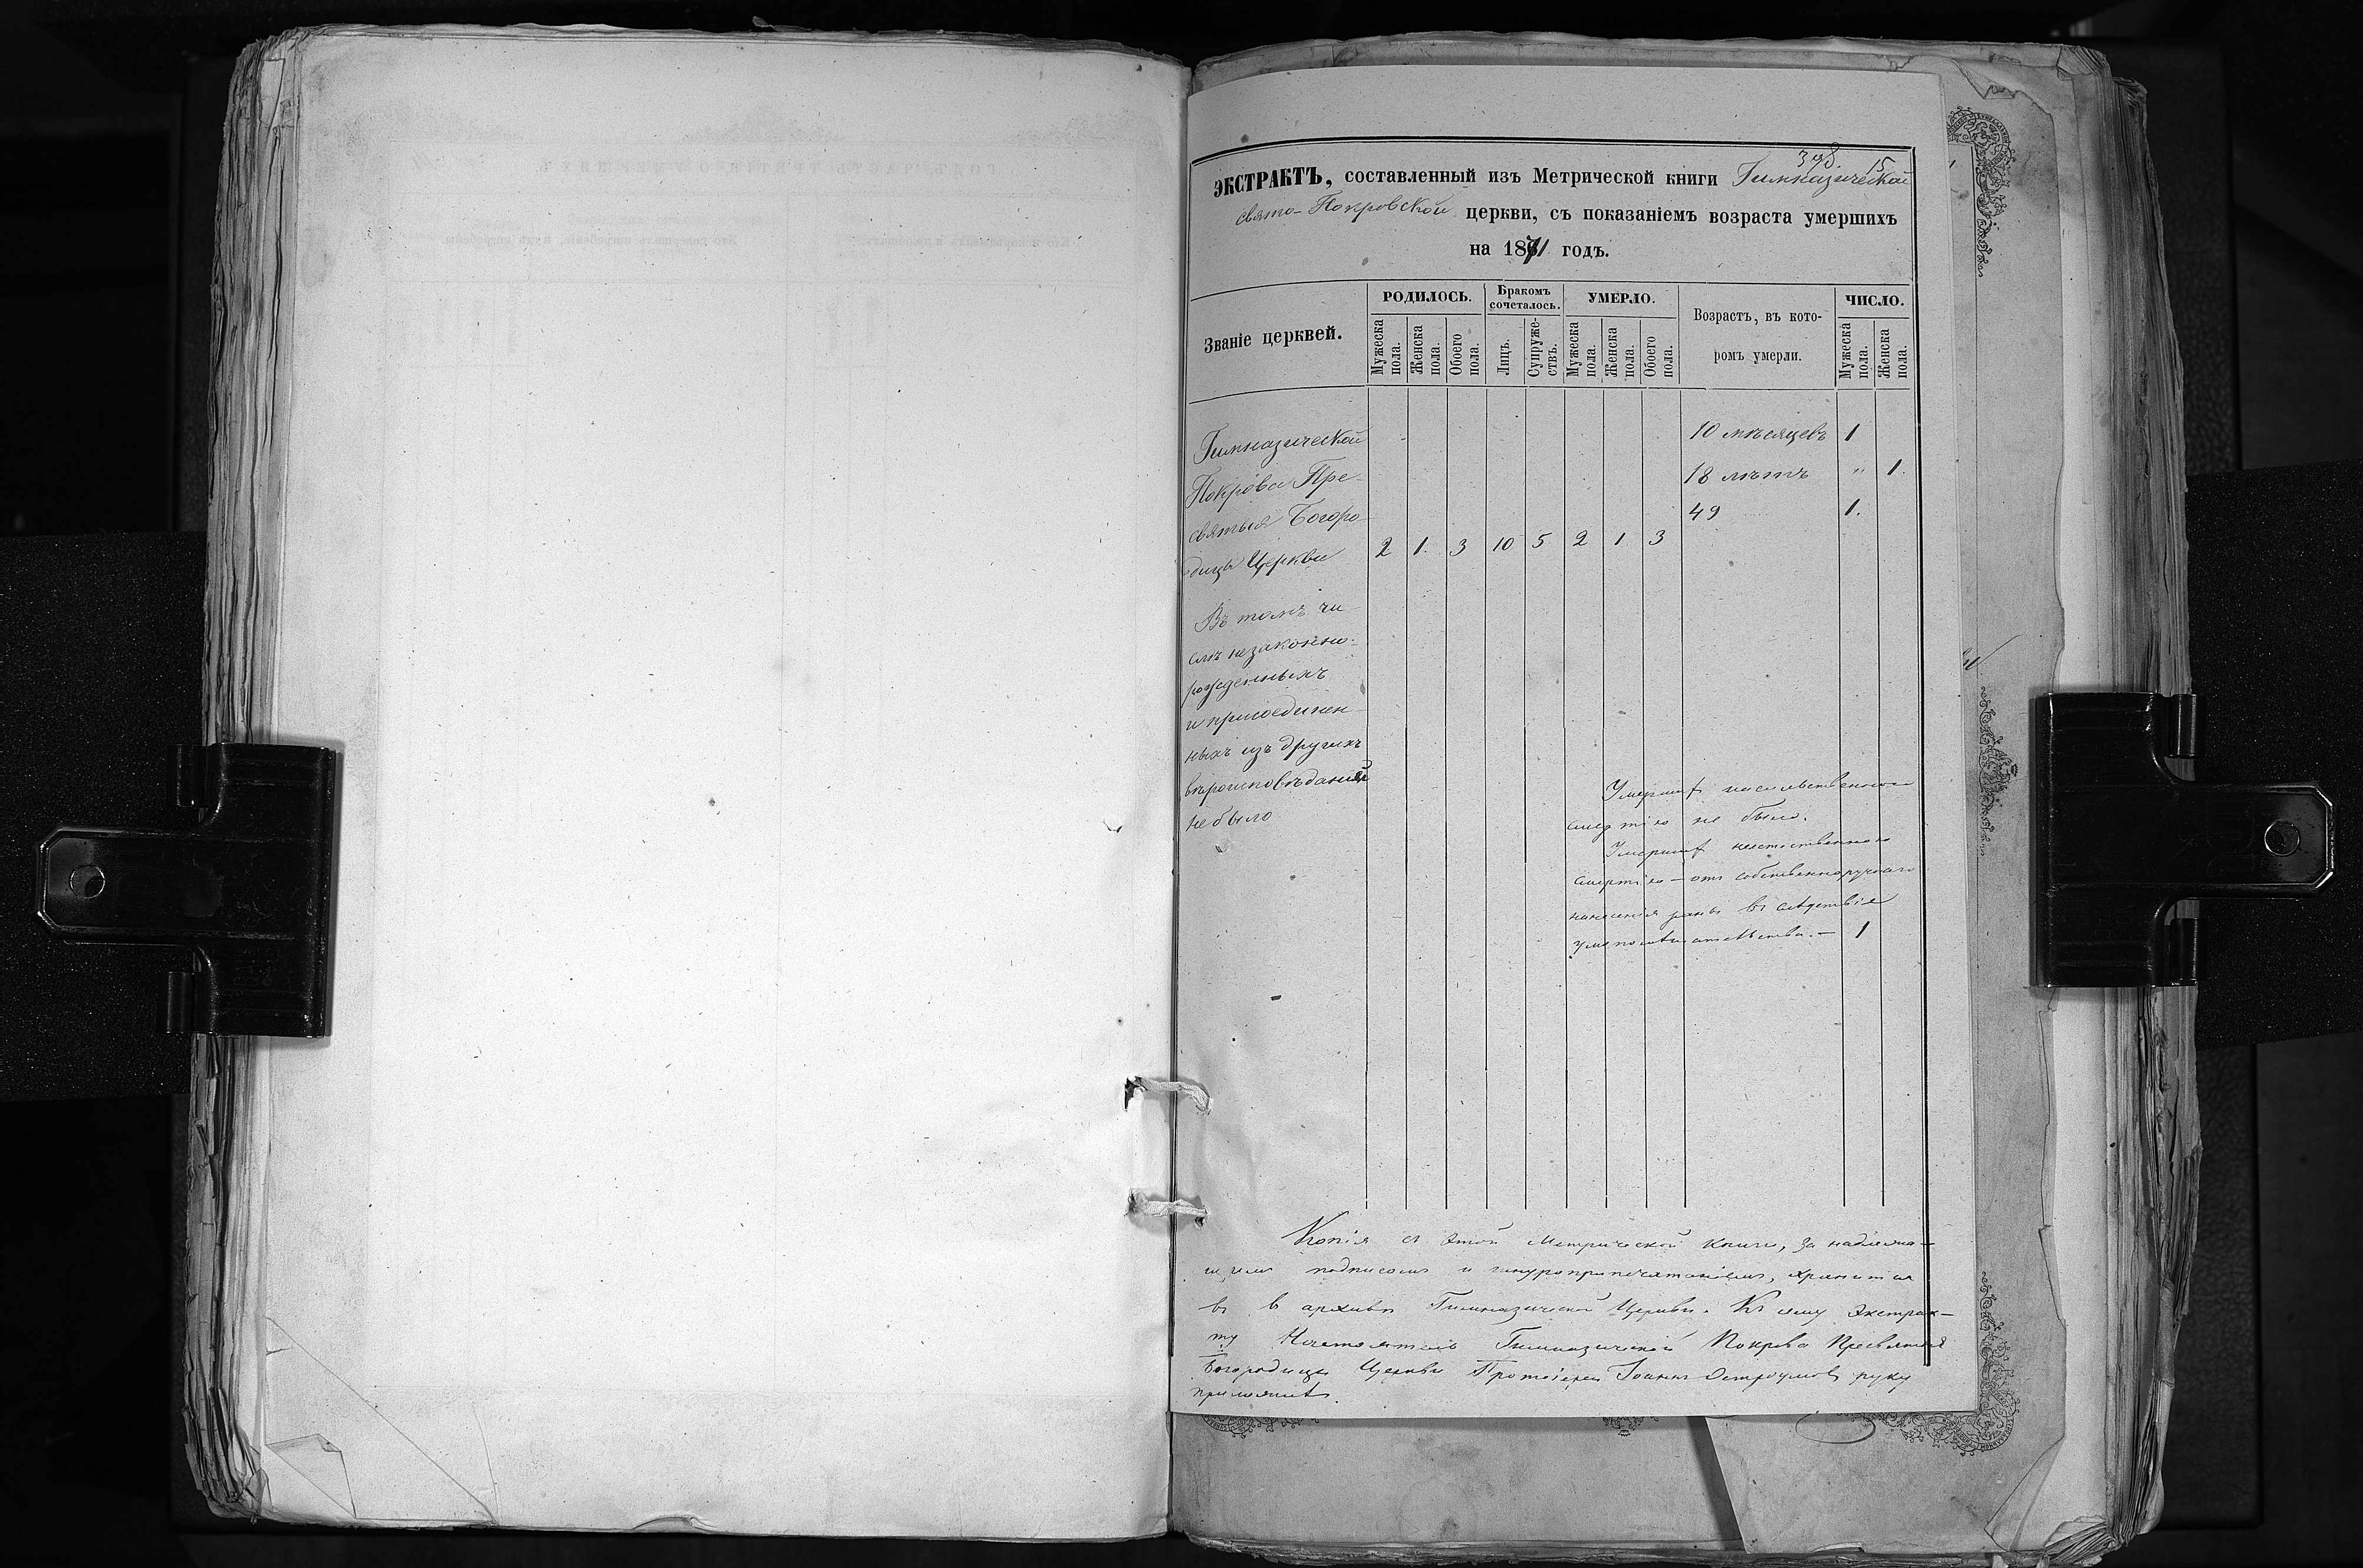 398. 15
ЭКСТРАКТЪ, составленный изъ Метрической книги Гимназической
свято-Покровской церкви, съ показаніемъ возраста умершихъ
на 1871 годъ.
Званіе церквей.
РОДИЛОСЬ.
Мужеска пола.
Женска пола.
Обоего пола.
Бракомъ сочеталось.
Лицъ.
Супружествъ.
УМЕРЛО.
Мужеска пола.
Женска пола.
Обоего пола.
Возрастъ, въ кото-
ромъ умерли.
ЧИСЛО.
Мужеска пола.
Женска пола.
Гимназической
Покрова Пре-
святыя Богоро-
дицы Церкви 2 1. 3 10 5 2 1 3
10 мѣсяцевъ 1
18 лѣтъ " 1.
49 1.
Въ томъ чи
слѣ незаконно-
рожденныхъ
и присоединен
ныхъ изъ другихъ
вѣроисповѣданій
не было
Умерших насильственною
смертію не было.
Умерших неестественною
смертію — отъ собственноручнаго
нанесенія раны въ слѣдствіе
умопомѣшательства. — 1
Копія съ этой Метрической книги, за надлежа-
щимъ подписомъ и шнуропропечатаніемъ, хранится
въ в архивѣ Гимназической Церкви. Къ сему Экстрак-
ту Настоятель Гимназической Покрова Пресвятой
Богородицы Церкви Протоіерей Іоаннъ Остроумовъ руку
приложилъ.